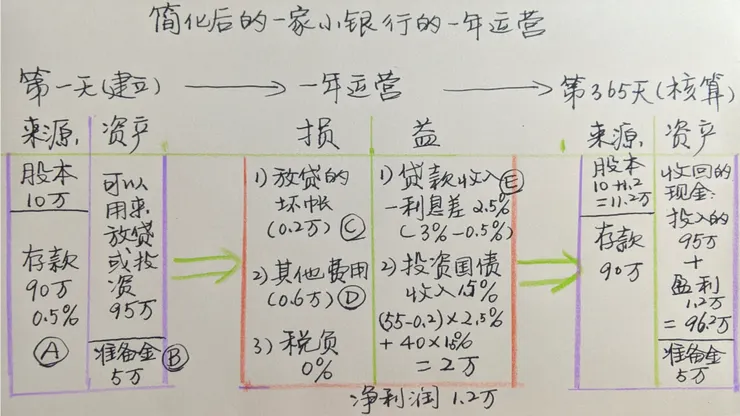 简化后的一家小银行的一年运营
第一天(建立)
一年运营
第365天(核算)
来源
资产
股本
10万
存款
90万
0.5%
A
可以
用来
放贷
或投
资
95万
准备金
5万
B
损
益
1) 放贷的
坏帐
(0.2万) C
2) 其他费用
(0.6万) D
3) 税负
0%
1) 贷款收入 E
一利息差 2.5%
(3%-0.5%)
2) 投资国债
收入1.5%
(55-0.2)×2.5%
+ 40×1.5%
= 2万
净利润 1.2万
来源
资产
股本
10+1.2
=11.2万
存款
90万
收回的
现金:
投入的
95万
+
盈利
1.2万
= 96.2万
准备金
5万